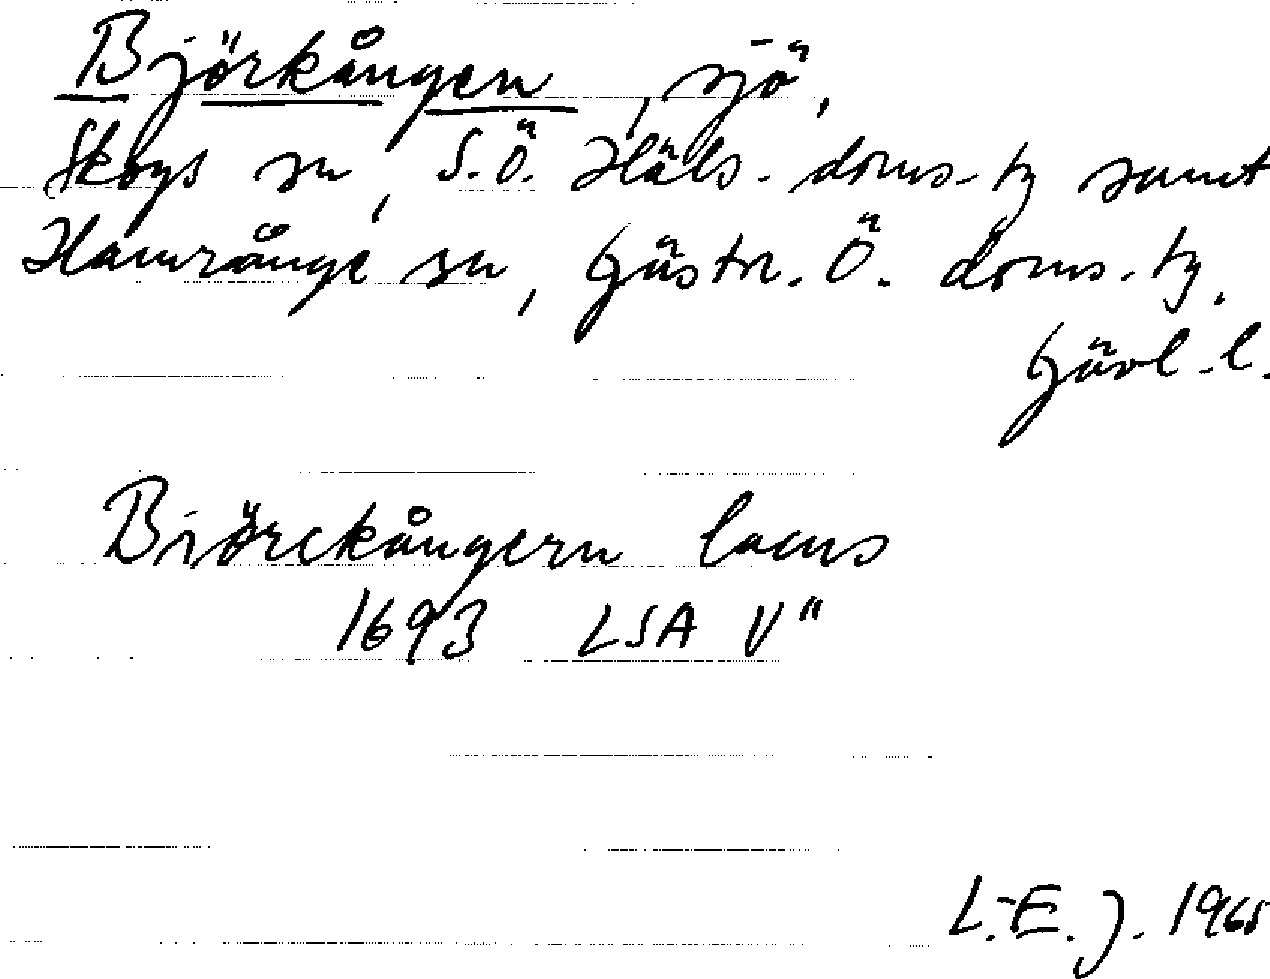 Björkången, sjö,
Skogs sn, S.Ö. Häls. doms-tg samt
Hamrånge sn, Gästr. Ö. doms-tg.
Gävl. l.
Biörckångern lacus
1693 LSA V"
L.-E. J. 1965